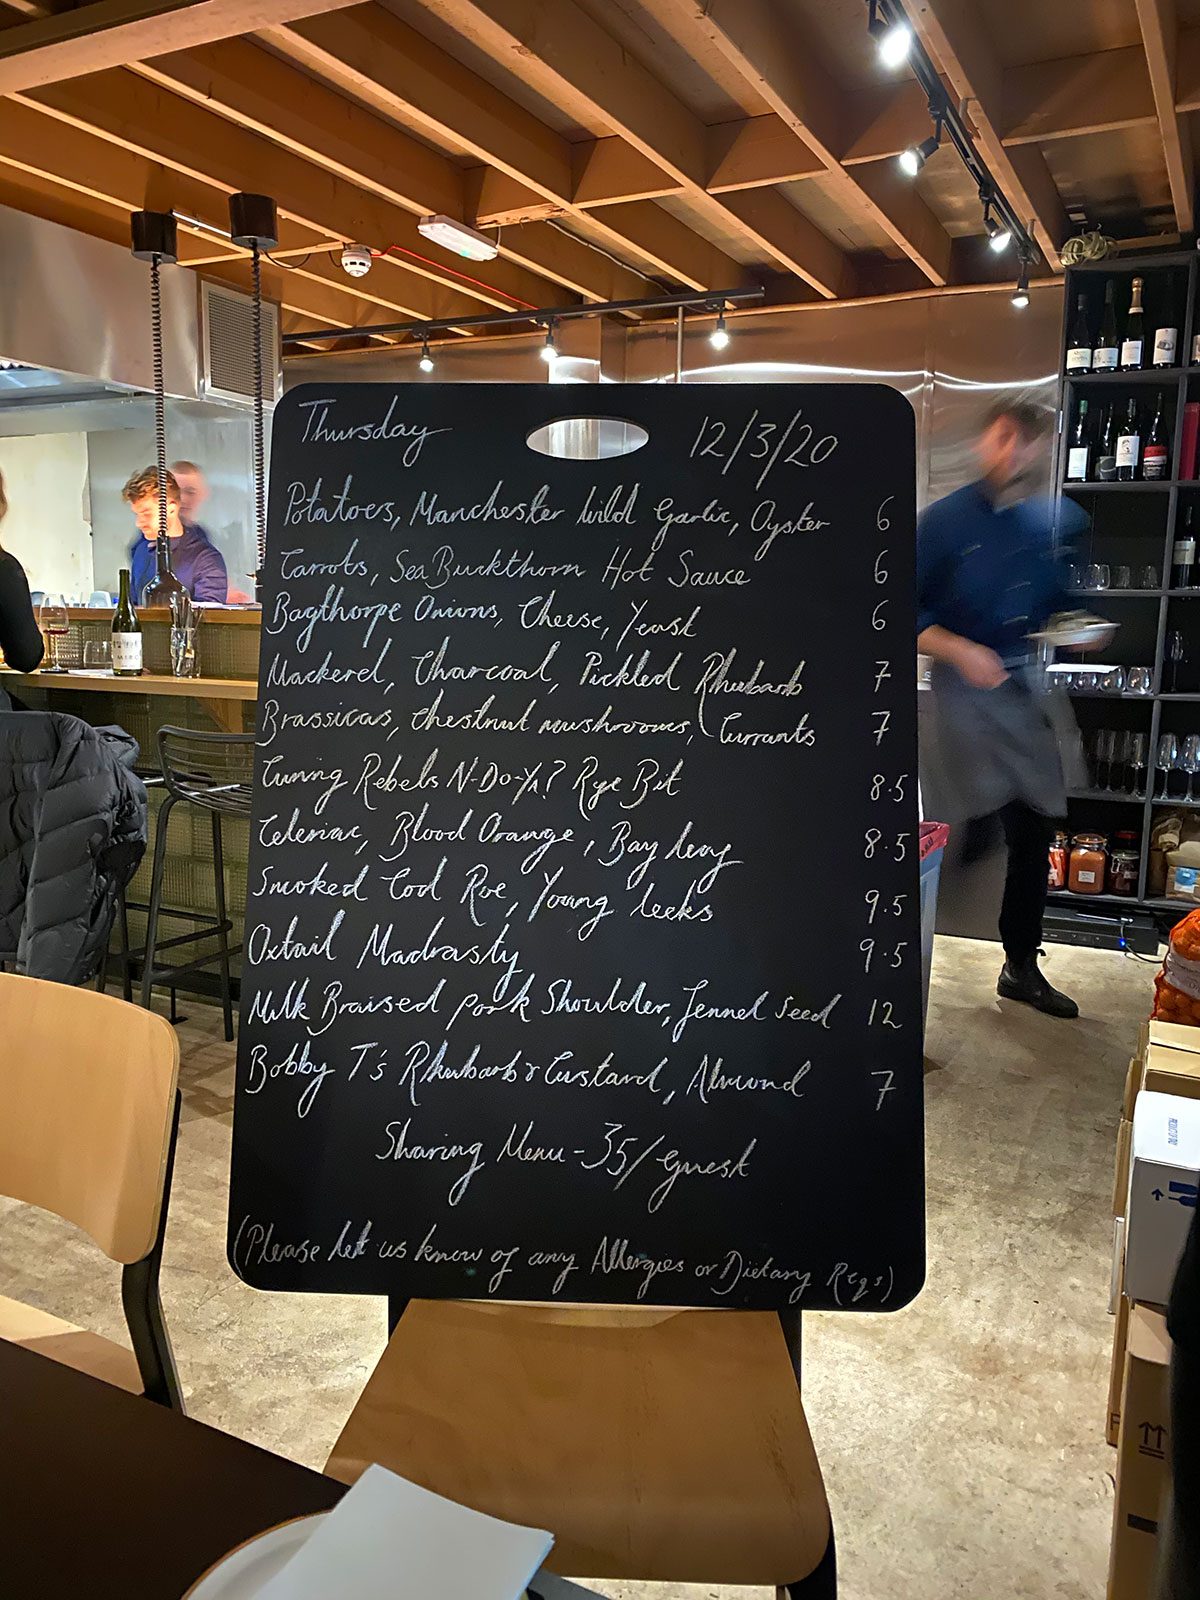 Thursday 12/3/20
Potatoes, Manchester Wild Garlic, Oyster 6
Carrots, Sea Buckthorn Hot Sauce 6
Bagthorpe Onions, Cheese, Yeast 6
Mackerel, Charcoal, Pickled Rhubarb 7
Brassicas, Chestnut mushrooms, Currants 7
Curing Rebels N-Do-Ya? Rye Bit 8.5
Celeriac, Blood Orange, Bay 8.5
Smoked Cod Roe, Young leeks 9.5
Oxtail Madrasty 9.5
Milk Braised pork Shoulder, Fennel Seed 12
Bobby T's Rhubarb & Custard, Almond 7
Sharing Menu - 35/Guest
(Please let us know of any Allergies or Dietary Reqs)